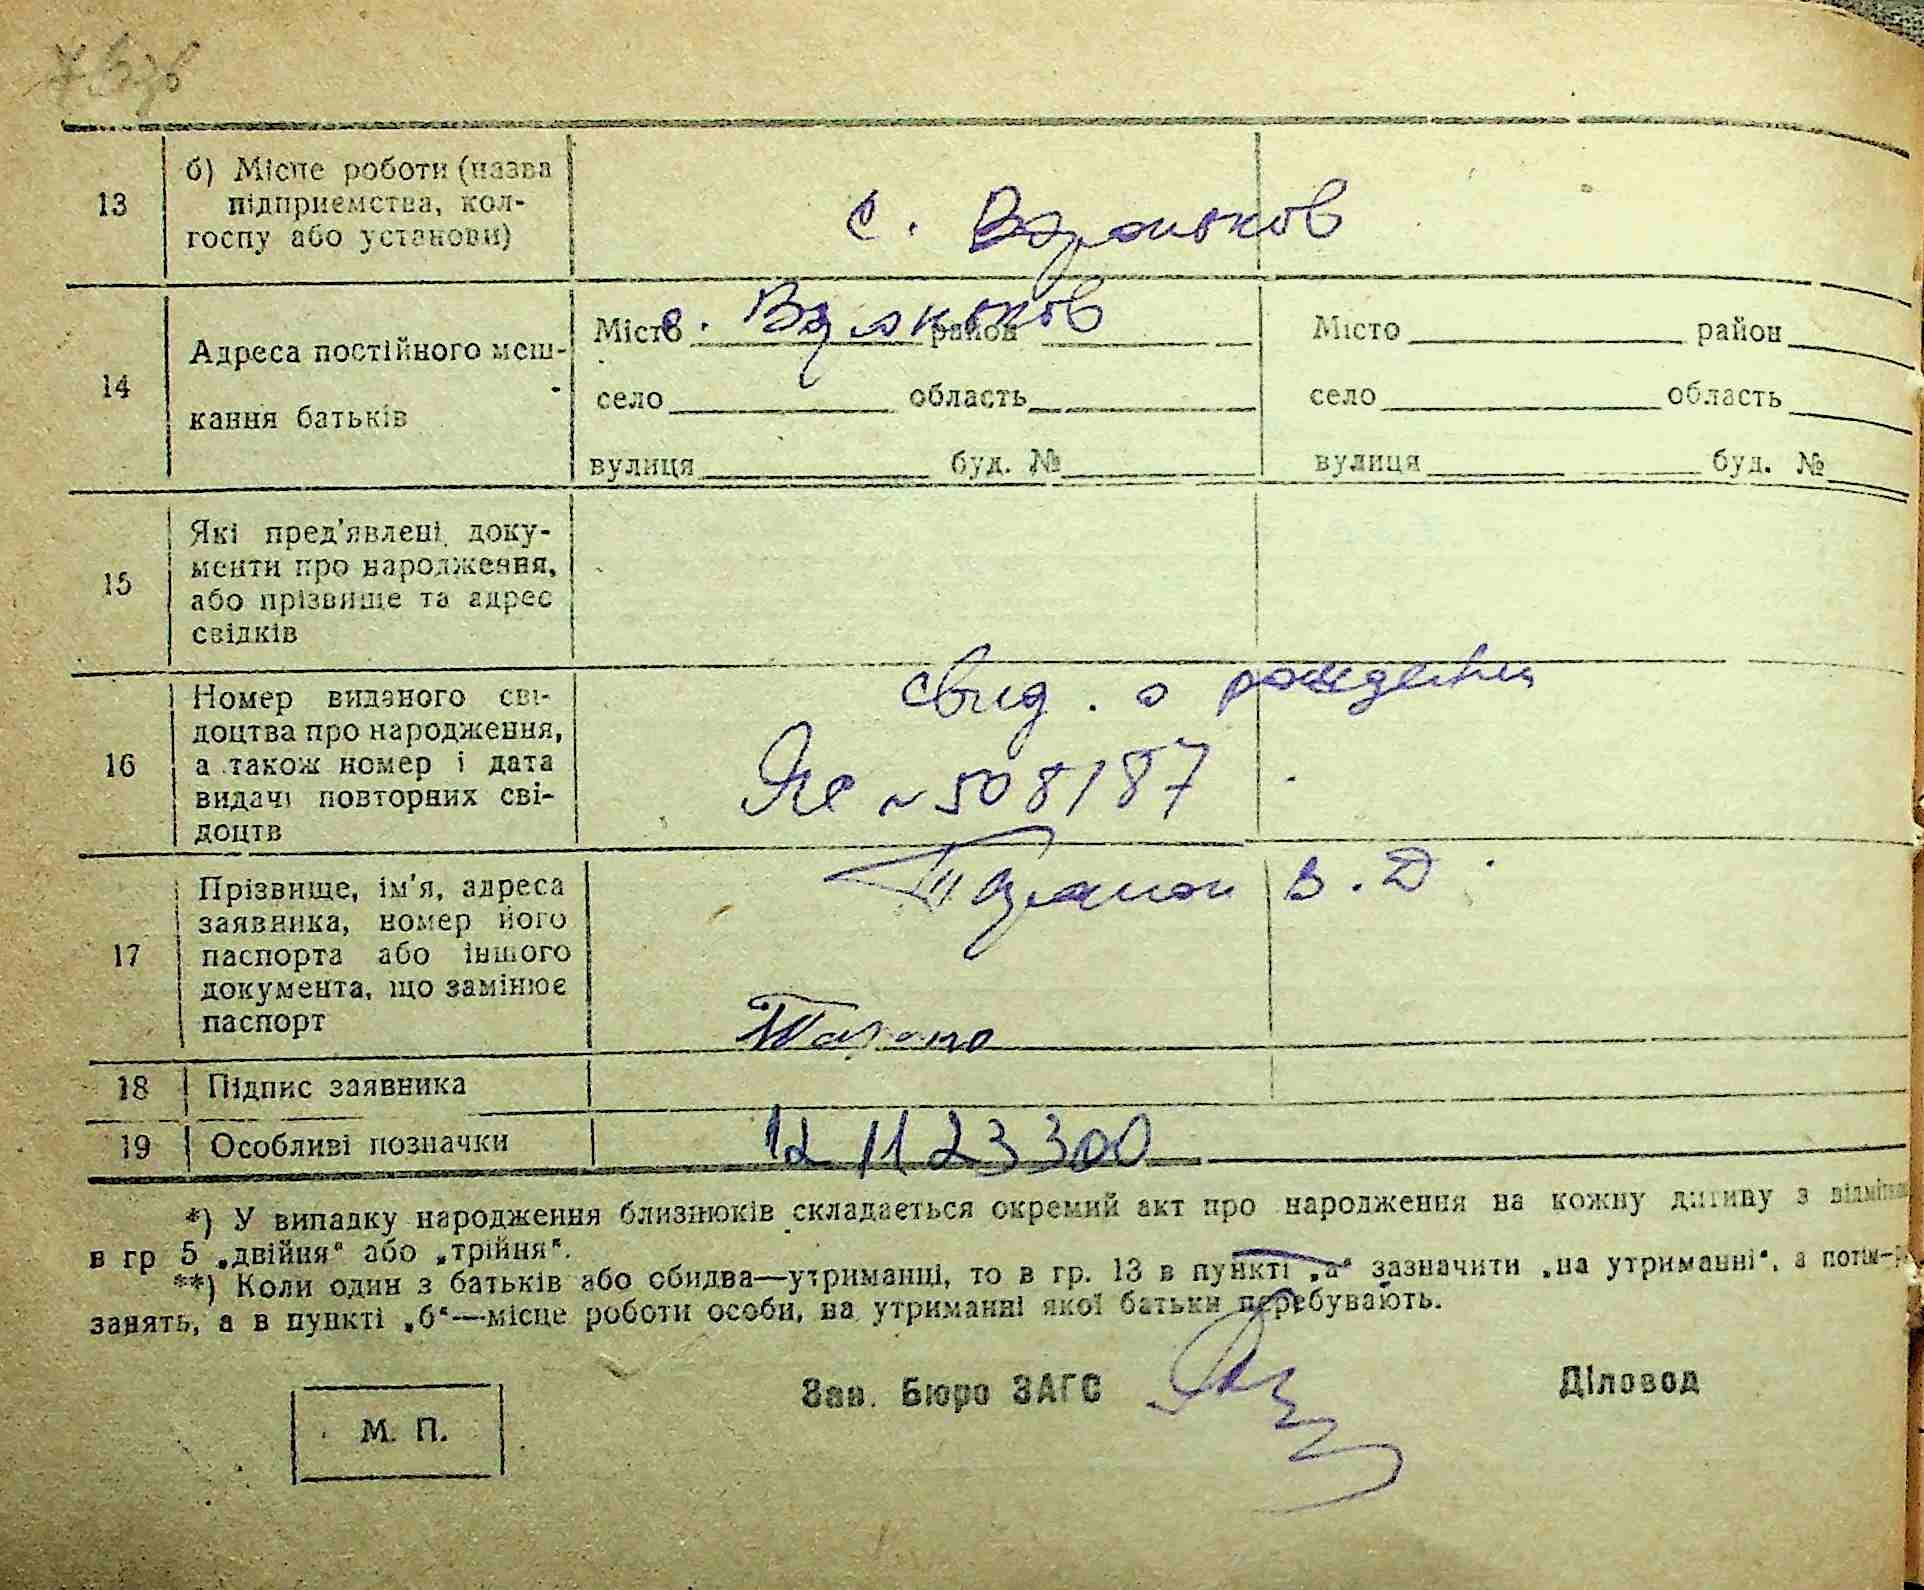 13
б) Місце роботи (назва
підприємства, кол-
госпу або установи)
с.
14
Адреса постійного меш-
кання батьків
Місто район
село область
вулиця буд. №
Місто район
село область
вулиця буд. №
15
Які пред'явлені доку-
менти про народження,
або прізвище та адрес
свідків
16
Номер виданого сві-
доцтва про народження,
а також номер і дата
видачі повторних сві-
доцтв
свид. о рождении
№ 508187
17
Прізвище, ім'я, адреса
заявника, номер його
паспорта або іншого
документа, що замінює
паспорт
В. Д.
18 Підпис заявника
19 Особливі позначки
12 11 23300
*) У випадку народження близнюків складається окремий акт про народження на кожну дитину з
в гр 5 „двійня“ або „трійня“.
**) Коли один з батьків або обидва—утриманці, то в гр. 13 в пункті „а“ зазначити „на утриманні“, а потім—
занять, а в пункті „б“—місце роботи особи, на утриманні якої батьки перебувають.
Зав. Бюро ЗАГС Діловод
М. П.